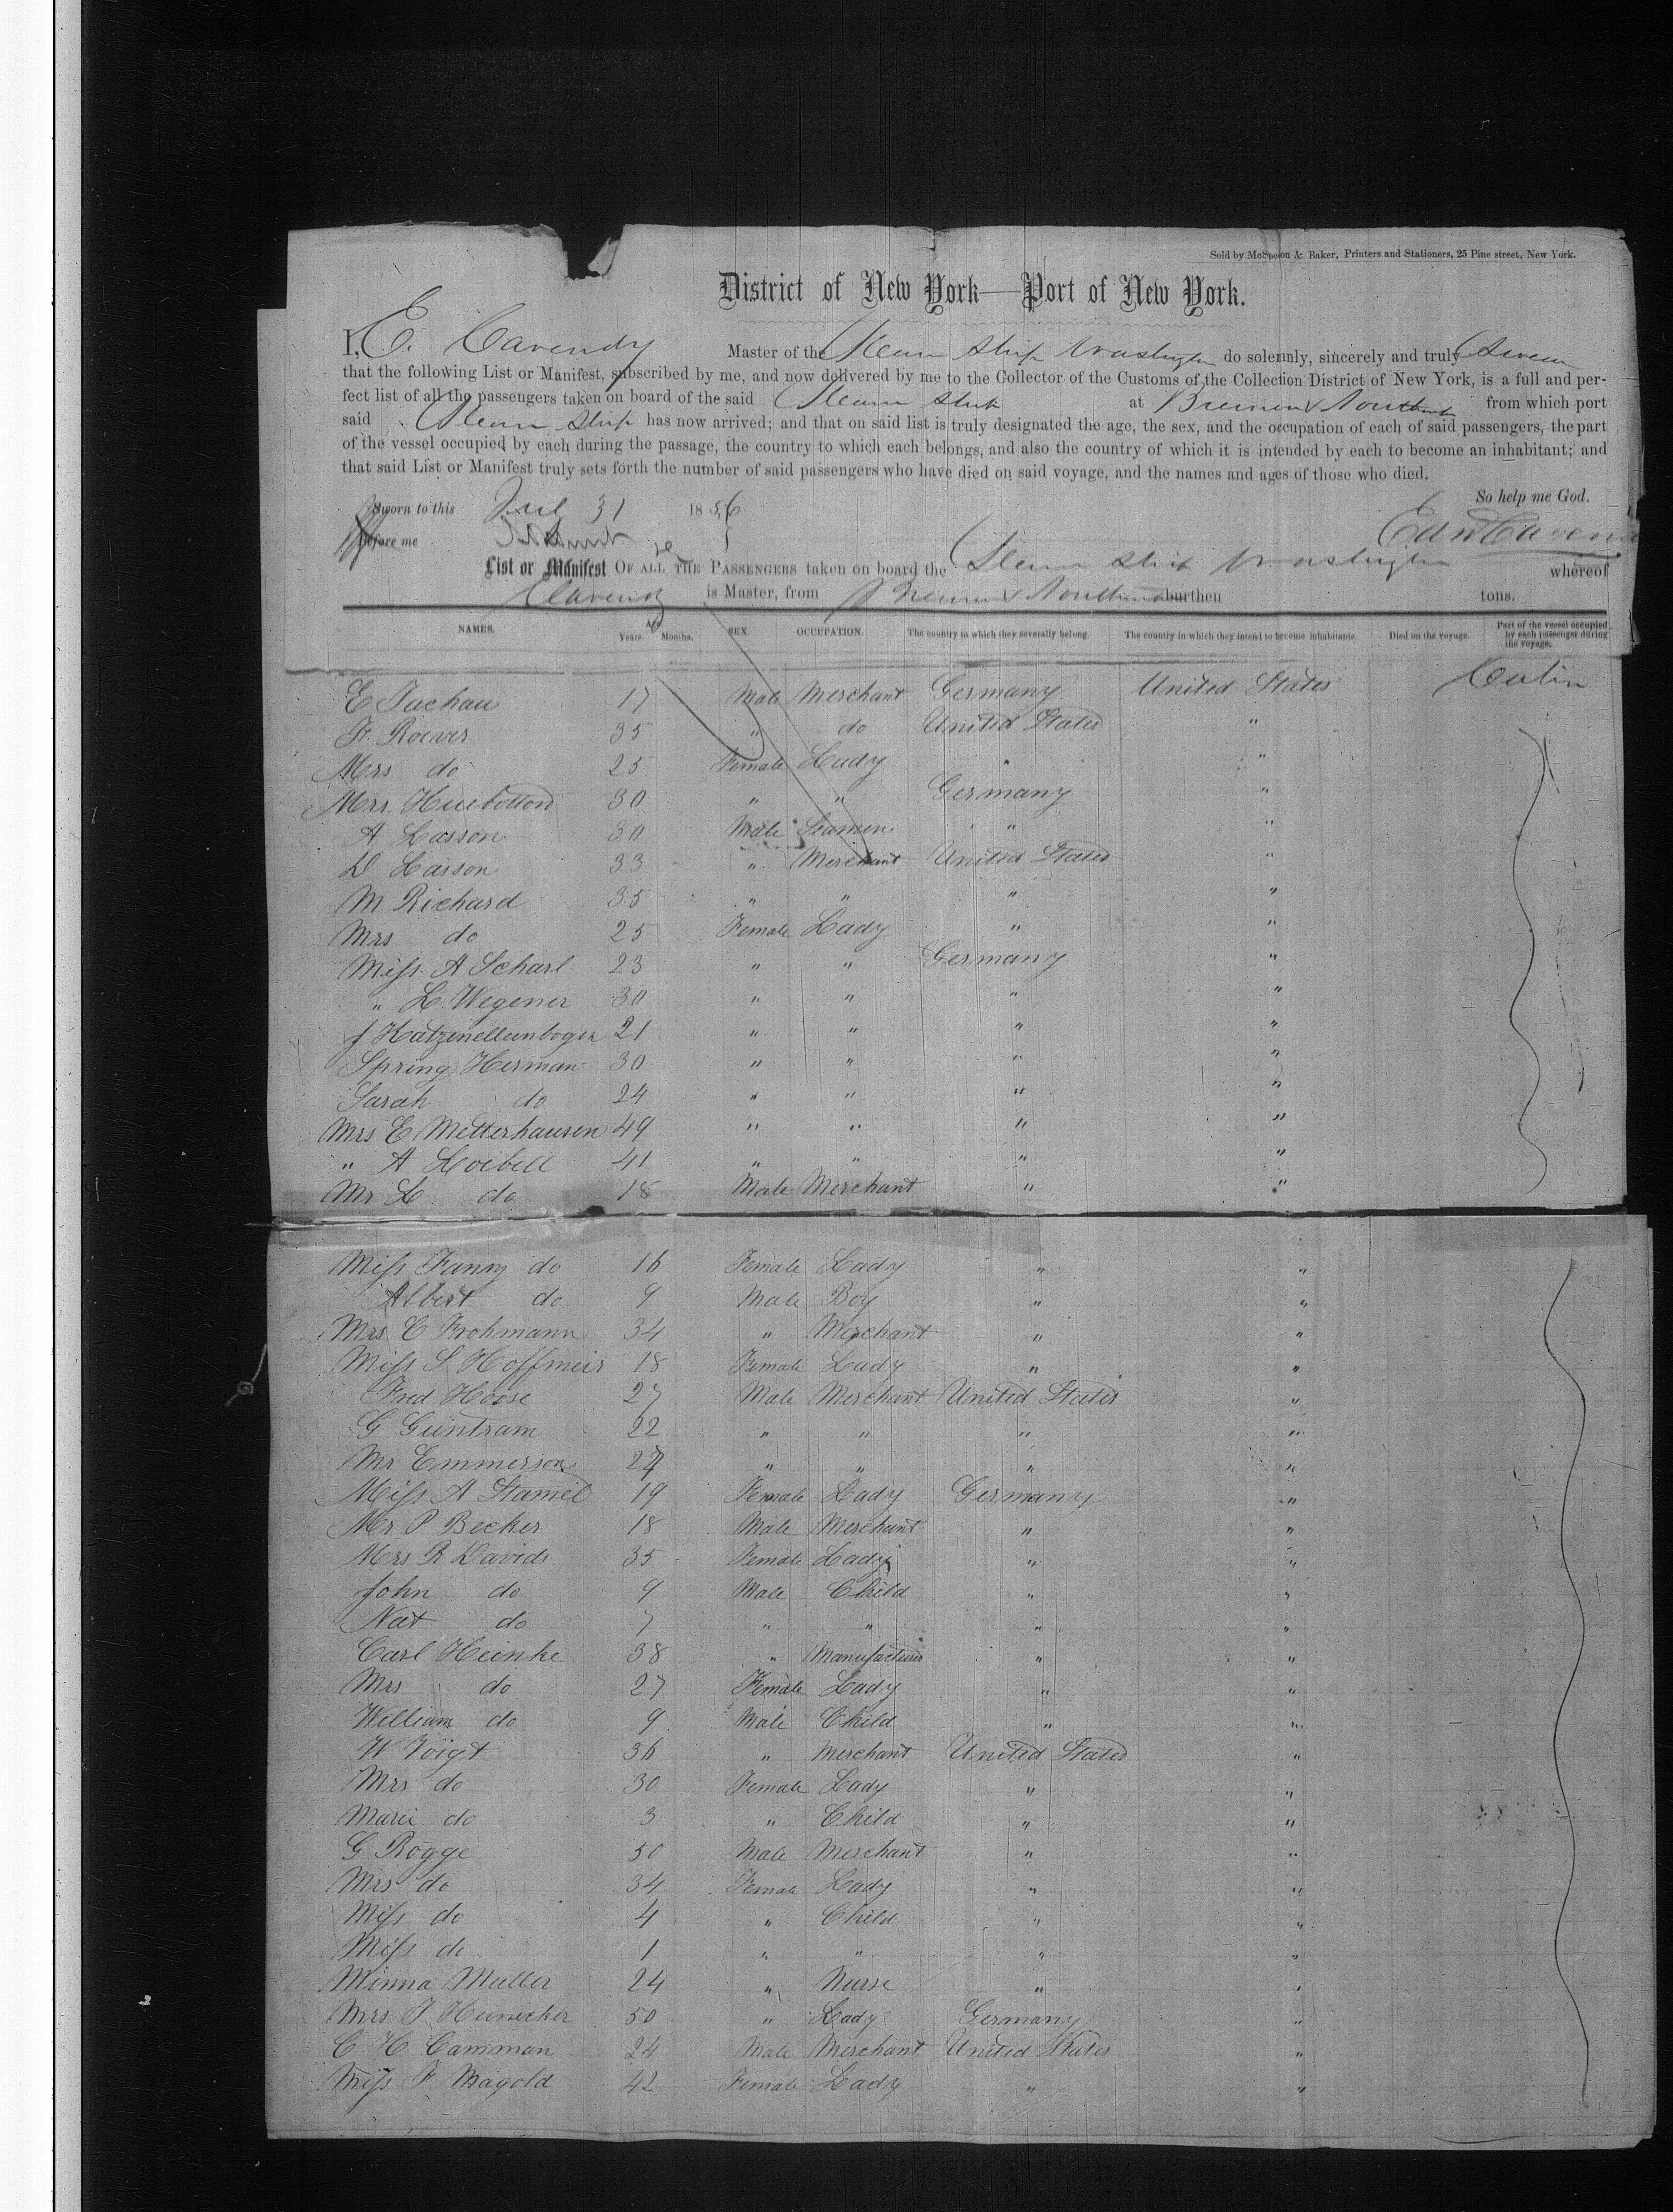 Sold by McSpedon & Baker, Printers and Stationers, 25 Pine street, New York.
District of New York—Port of New York.
I, E. Cavendy Master of the Steam Ship Washington do solemnly, sincerely and truly Swear
that the following List or Manifest, subscribed by me, and now delivered by me to the Collector of the Customs of the Collection District of New York, is a full and per-
fect list of all the passengers taken on board of the said Steam Ship at Bremen & from which port
said Steam Ship has now arrived; and that on said list is truly designated the age, the sex, and the occupation of each of said passengers, the part
of the vessel occupied by each during the passage, the country to which each belongs, and also the country of which it is intended by each to become an inhabitant; and
that said List or Manifest truly sets forth the number of said passengers who have died on said voyage, and the names and ages of those who died.
So help me God.
Sworn to this July 31 1856
Before me
List or Manifest OF ALL THE PASSENGERS taken on board the Steam Ship Washington whereof
Cavendy is Master, from Bremen & burthen tons.
NAMES. AGE Years. Months. SEX. OCCUPATION. The country to which they severally belong. The country in which they intend to become inhabitants. Died on the voyage. Part of the vessel occupied by each passenger during the voyage.
E Tachau 17 Male Merchant Germany United States
F. Roever 35 " do United States "
Mrs do 25 Female Lady " "
Mrs. 30 " " Germany "
A Lasson 30 Male Seamen " "
D Lasson 33 " Merchant United States "
M Richard 35 " " " "
Mrs do 25 Female Lady " "
Miss A Scharl 23 " " Germany "
" L. Wegener 30 " " " "
J Katzenellenbogen 21 " " " "
Spring Herman 30 " " " "
Sarah do 24 " " " "
Mrs E Metterhausen 49 " " " "
" A Loebell 41 " " " "
Mr L. do 18 Male Merchant " "
Miss Fanny do 16 Female Lady " "
Albert do 9 Male Boy " "
Mrs. C Frohmann 34 " Merchant " "
Miss S. Hoffmeis 18 Female Lady " "
Fred Hoose 27 Male Merchant United States "
G Guntram 22 " " " "
Mr Emmerson " " " "
Miss A Stamel 19 Female Lady Germany "
Mr P Becker 18 Male Merchant " "
Mrs R Davids 35 Female Lady " "
John do 9 Male Child " "
Nat do 7 " " " "
Carl Heinke 38 " Manufacturer " "
Mrs do 27 Female Lady " "
William do 9 Male Child " "
W Voigt 36 " Merchant United States "
Mrs do 30 Female Lady " "
Marie do 3 " Child " "
G Rogge 50 Male Merchant " "
Mrs do 34 Female Lady " "
Miss do 4 " Child " "
Miss do 1 " " " "
Minna Muller 24 " Nurse " "
Mrs J Heinecker 50 " Lady Germany "
C H Camman 24 Male Merchant United States "
Miss F Magold 42 Female Lady " "